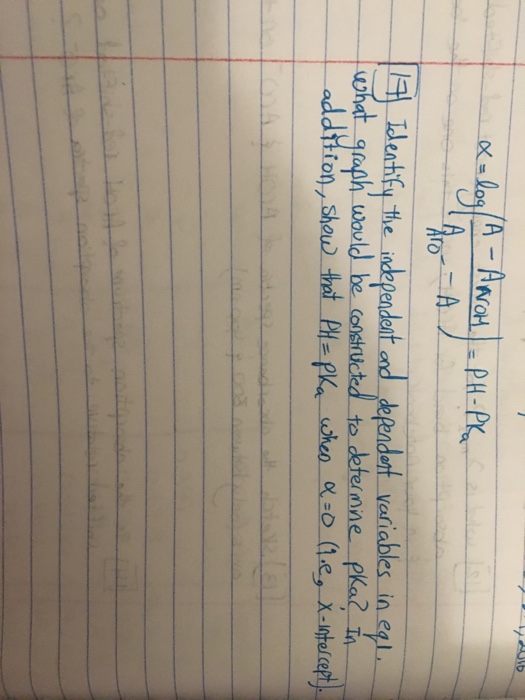 α = log(A - AArOH / AArO- - A) = PH - PKa
[17] Identify the independent and dependent variables in eq1.
what graph would be constructed to determine pKa? In
addition, show that PH = pKa when α=0 (i.e, x-intercept).